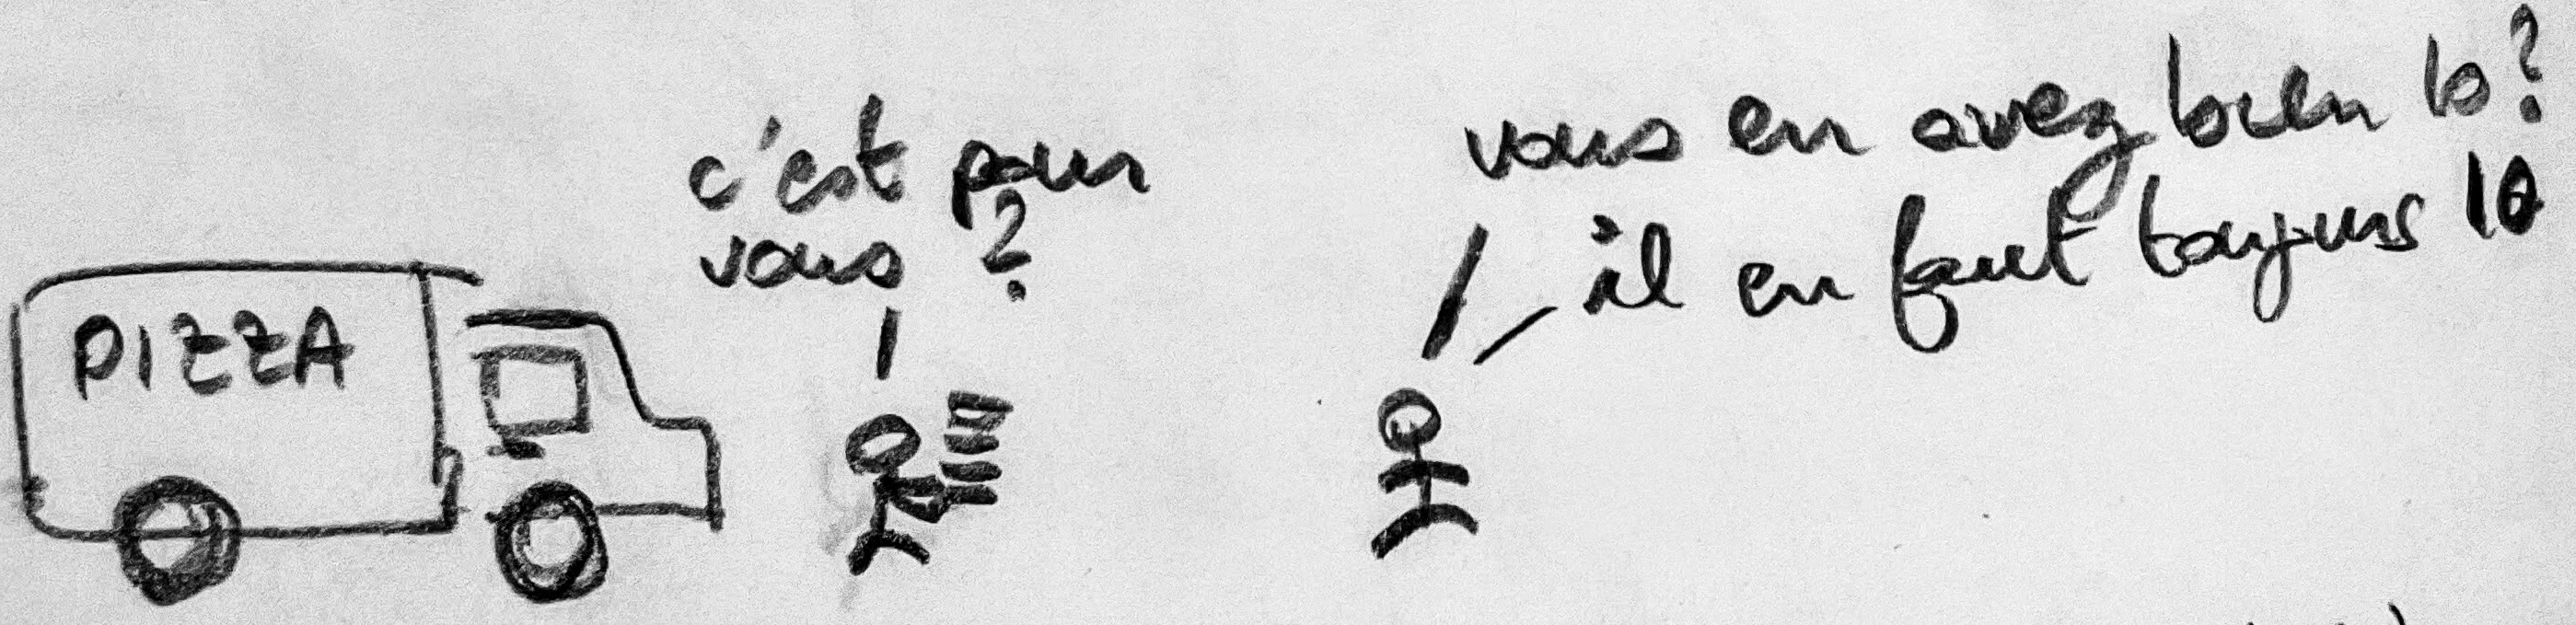 PIZZA
c'est pour
vous ?
vous en avez bien 10 ?
il en faut toujours 10